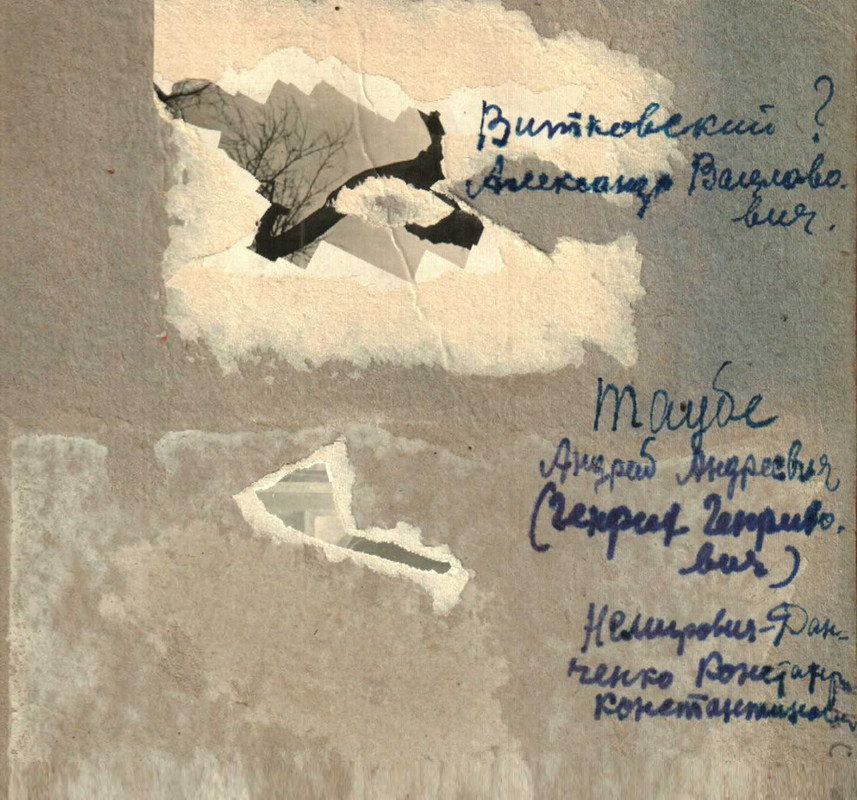 Витковский ?
Александр Вацлаво-
вич.
Таубе
Андрей Андреевич
(Генрих Генрихо-
вич)
Немирович-Дан-
ченко Констант
Константинович